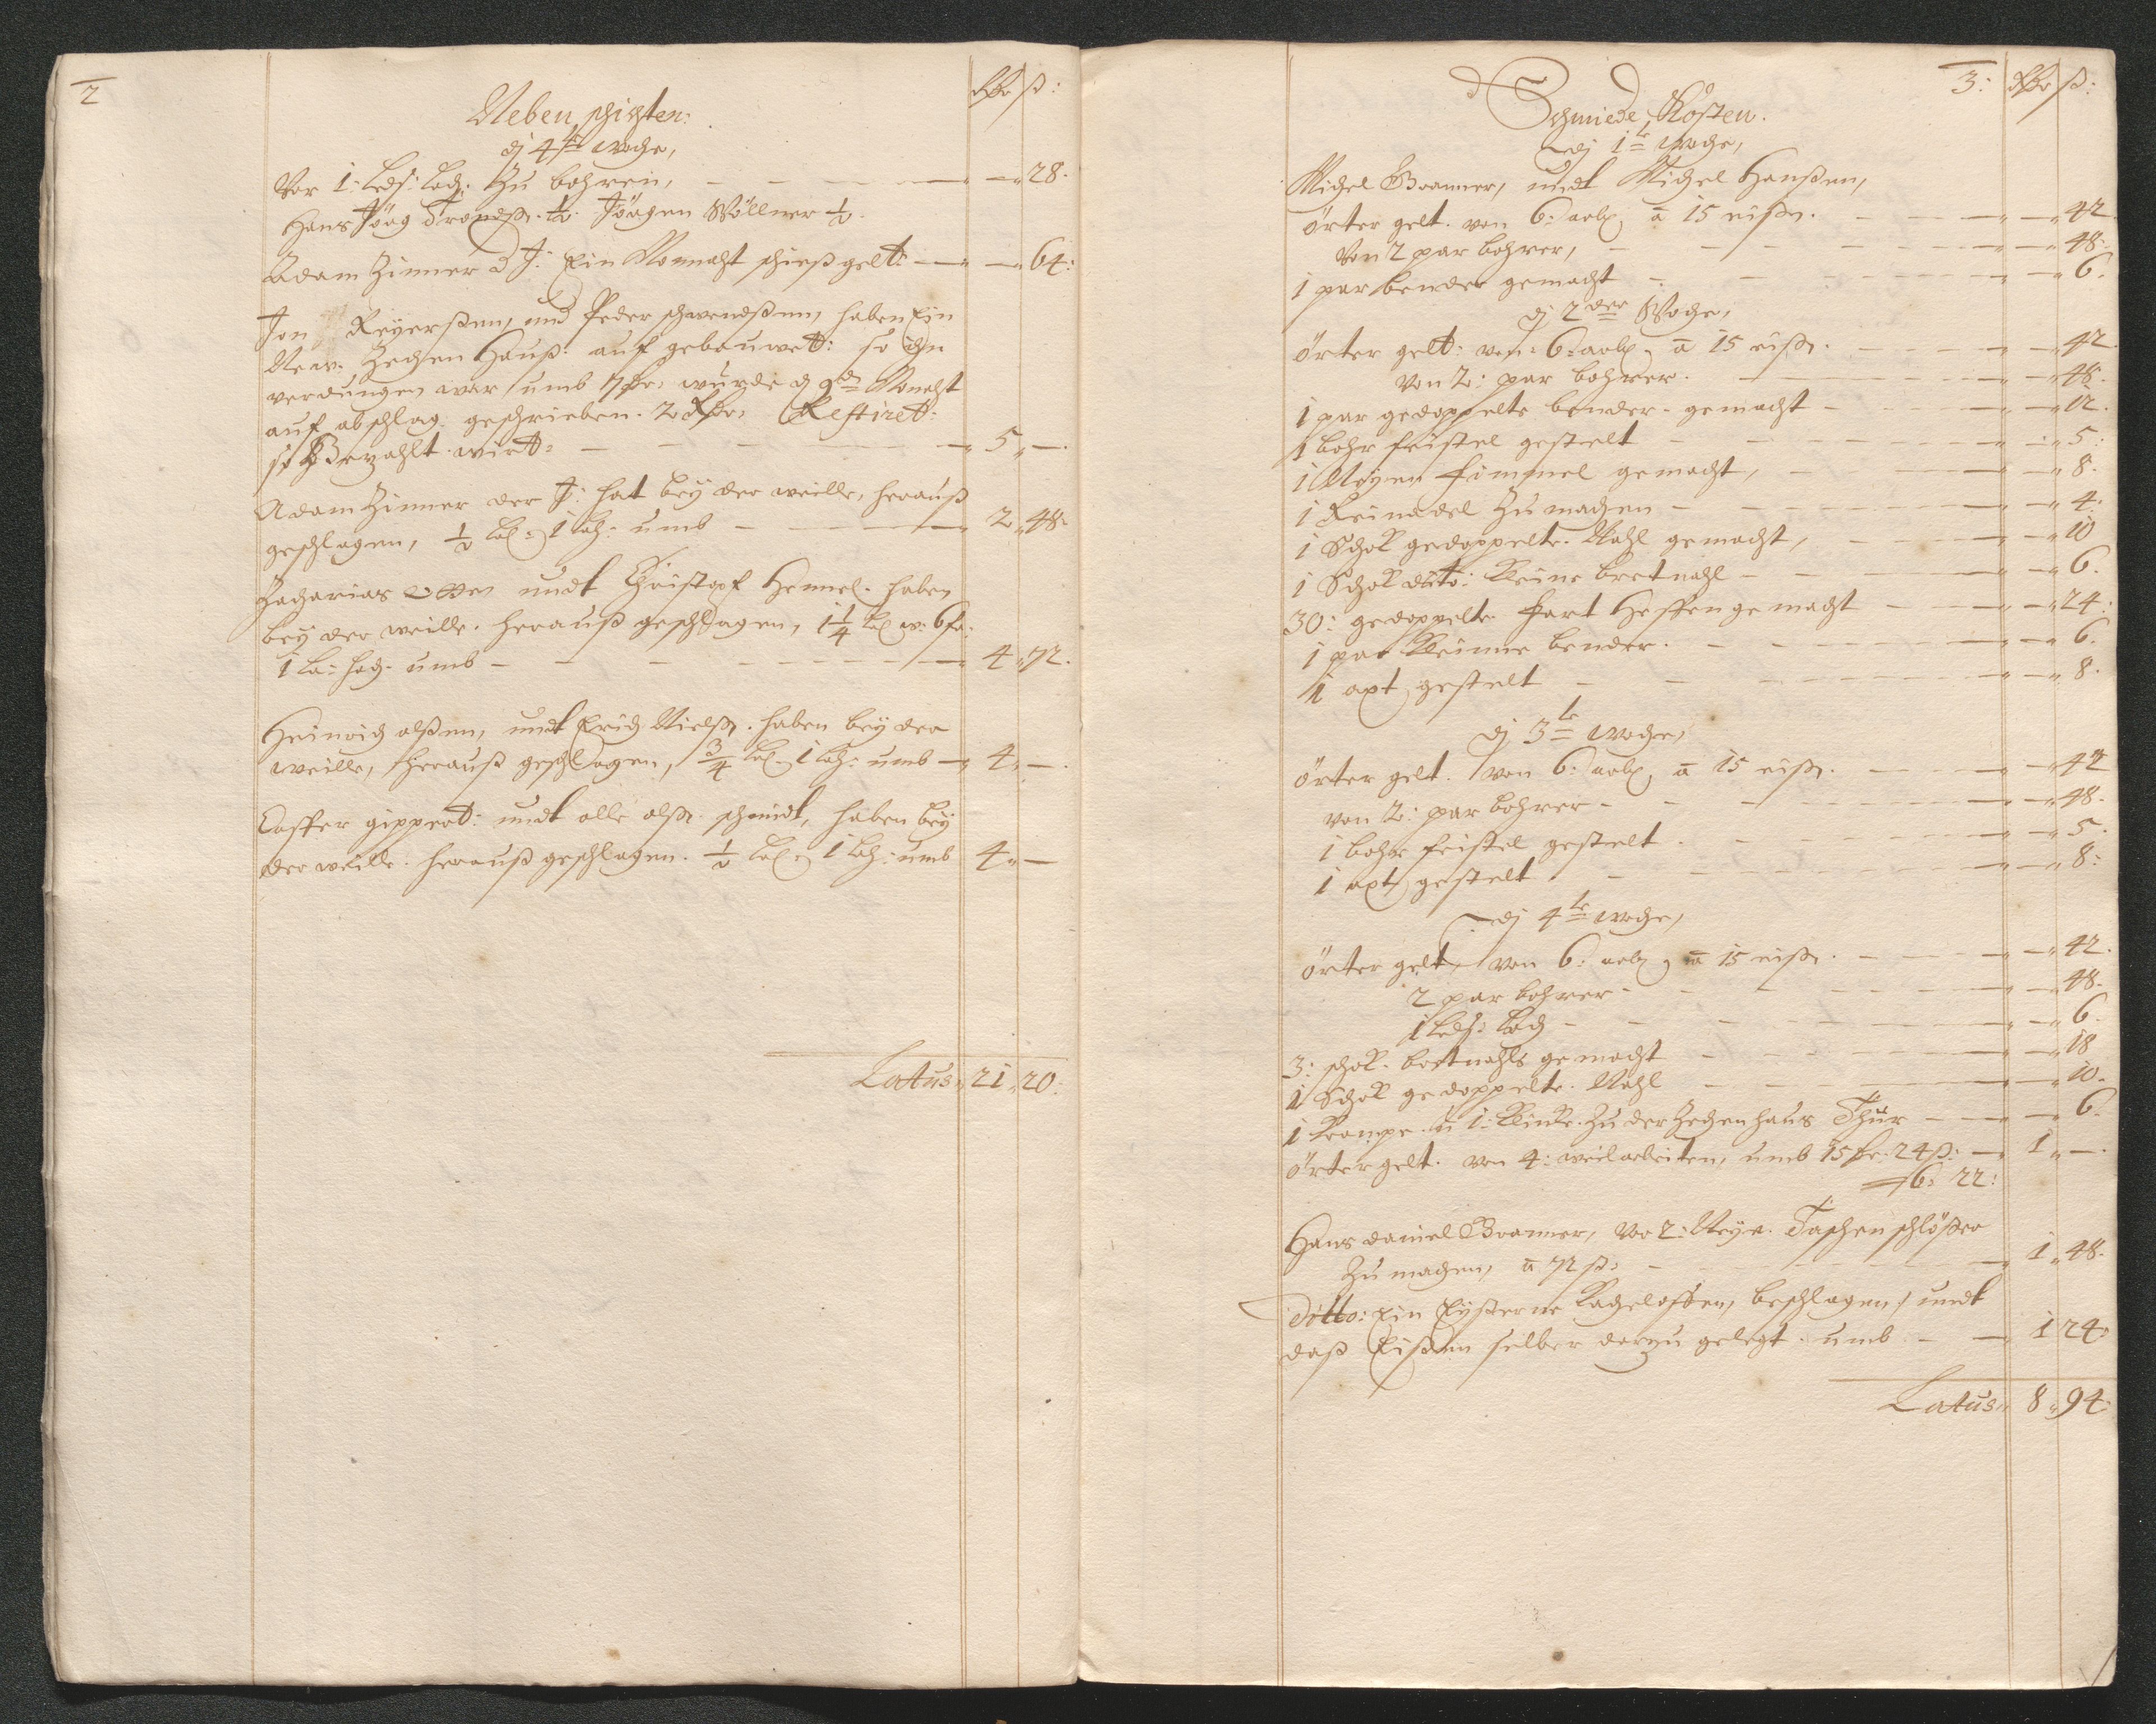 2
Rdr ß:
Neben schichten:
dj 4te woche,
Vor 1: Lufs: Loch: Zu bohren, — — 28.
Hans Jörg Trondß. ½. Jörgen Wöllner ½.
Adam Zinner d J: Ein Monnaht schießgelt: — — 64:
Jon Reyerßen, und Peder schwendßen, haben Ein
New. Zechen Hauß: auf gebauwet: so ihn
verdungen war umb 7 dr: wurde d 9de Monaht
auf abschlag. geschrieben. 2 Rdr: Restiret:
so Bezahlt wirt: — 5 „ —.
Adam Zinner der J: hat bey der weille, herauß
geschlagen, ½ La: 1 Lach: umb — 2 „ 48.
Zacharias Otten undt Christopf Hemel. haben
bey der weille. herauß geschlagen, 1¼ La: w: 6 fr:
1 La: hoch. umb — 4 „ 72.
Heinrich olßen, undt Erich Nielß. haben bey der
weille, herauß geschlagen, ¾ La: 1 Lach: umb — 4 „ —.
Casper gippert: undt olle olß. schmidt, haben bey
der weille. herauß geschlagen. ½ La: 1 Lach: umb 4 „ —
Latus „ 21 „ 20:
3:
Rdr ß:
Schmiede, Kosten.
dj 1te woche,
Michel Branner, undt Michel Hanßen,
örter gelt. von 6: arb: a 15 eiß. — — 42.
Von 2 par bohrer, — — 48.
1 par bender gemacht — — 6.
dj 2der Woche,
örter gelt: von 6: arb: a 15 eiß. — — 42
Von 2: par bohrer. — — 48.
1 par gedoppelte bender. gemacht — — 12.
1 bohr feistel gestelt — — 5:
1 Neyen fimmel gemacht, — — 8.
1 Reinadel Zu machen — — 4:
1 Schok gedoppelte. Nahl gemacht, — — 10
1 Schok dito: Kleine bretnahl — — 6.
30: gedoppelte. fart Hespen gemacht — — 24:
1 par Kleinne bender. — — 6.
1 axt gestelt — — 8.
dj 3te woche,
örter gelt. von 6: arb: a 15 eiß. — — 42
von 2: par bohrer — — 48.
1 bohr feistel gestelt. — — 5.
1 axt gestelt — — 8:
dj 4te woche,
örter gelt, von 6: arb: a 15 eiß. — — 42.
2 par bohrer — — 48.
1 Lufs: Loch — — 6.
3: schok. bretnahls gemacht — — 18
1 Schok gedoppelte. Nahl — — 10.
1 Krampe. u 1: Klinke. Zu der Zechenhaus Thür — — 6.
örter gelt. von 4: weilarbeiten, umb 15 dr: 24 ß: — 1 „ —.
6: 22:
Hans daniel Branner, vor 2: Neye. Taschen schlößer
Zu machen, a 72 ß: — 1 „ 48.
Ditto: Ein Eyßerne Kacheloffen, beschlagen, undt
daß Eißen selber darzu gelegt. umb — 1 24:
Latus „ 8 „ 94: